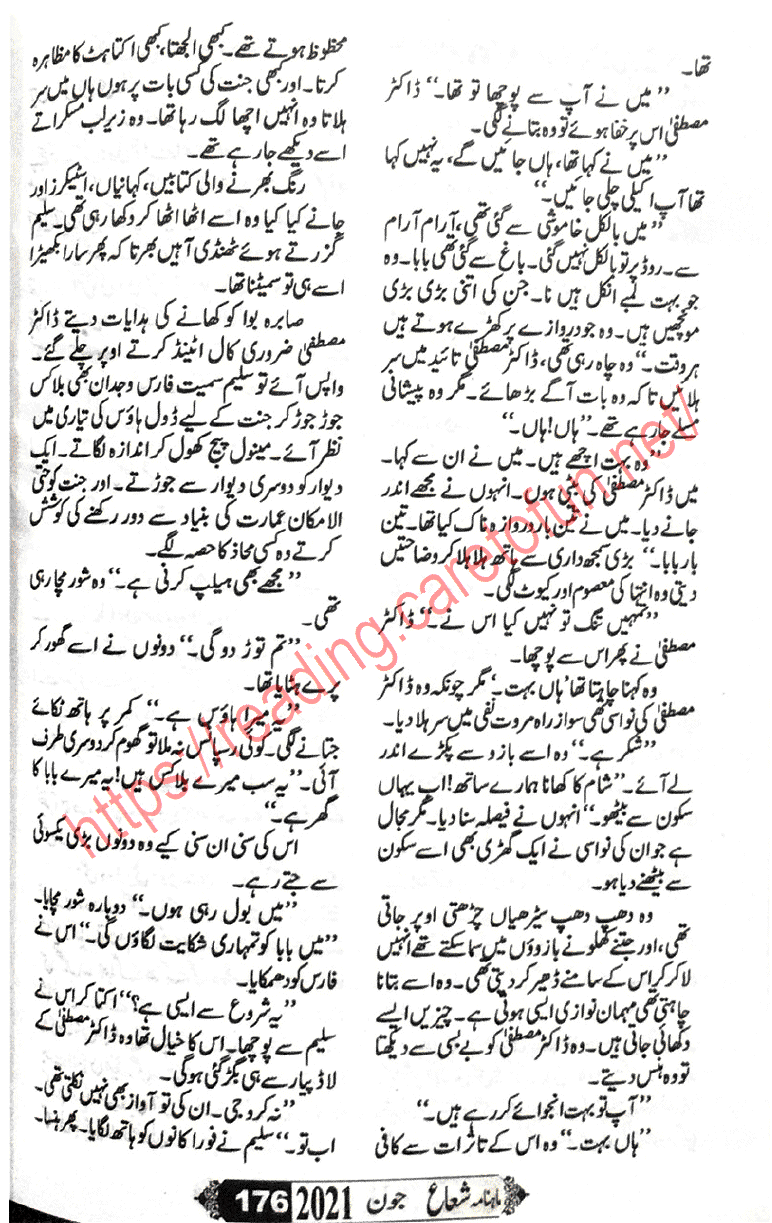 تھا۔
”میں نے آپ سے پوچھا تو تھا۔“ ڈاکٹر
مصطفیٰ اس پر خفا ہوئے تو وہ بتانے لگی۔
”میں نے کہا تھا، ہاں جائیں گے، یہ نہیں کہا
تھا آپ اکیلی چلی جائیں۔“
”میں بالکل خاموشی سے گئی تھی، آرام آرام
سے۔ روڈ پر تو بالکل نہیں گئی۔ باغ سے گئی تھی بابا۔ وہ
جو بہت لمبے انکل ہیں نا۔ جن کی اتنی بڑی بڑی
مونچھیں ہیں۔ وہ جو دروازے پر کھڑے ہوتے ہیں
ہر وقت۔“ وہ چاہ رہی تھی، ڈاکٹر مصطفیٰ تائید میں سر
ہلائیں تاکہ وہ بات آگے بڑھائے۔ مگر وہ پیشانی
مسلے جا رہے تھے۔ ”ہاں! ہاں۔“
”وہ بہت اچھے ہیں۔ میں نے ان سے کہا۔
میں ڈاکٹر مصطفیٰ کی بیٹی ہوں۔ انہوں نے مجھے اندر
جانے دیا۔ میں نے تین بار دروازہ ناک کیا تھا۔ تین
بار بابا۔“ بڑی سمجھ داری سے ہاتھ ہلا ہلا کر وضاحتیں
دیتی وہ انتہا کی معصوم اور کیوٹ لگی۔
”تمہیں تنگ تو نہیں کیا اس نے۔“ ڈاکٹر
مصطفیٰ نے پھر اس سے پوچھا۔
وہ کہنا چاہتا تھا ’ہاں بہت۔‘ مگر چونکہ وہ ڈاکٹر
مصطفیٰ کی نواسی تھی سو از راہ مروت نفی میں سر ہلا دیا۔
”شکر ہے۔“ وہ اسے بازو سے پکڑے اندر
لے آئے۔ ”شام کا کھانا ہمارے ساتھ! اب یہاں
سکون سے بیٹھو۔“ انہوں نے فیصلہ سنا دیا۔ مگر مجال
ہے جو ان کی نواسی نے ایک گھڑی بھی اسے سکون
سے بیٹھنے دیا ہو۔
وہ دھپ دھپ سیڑھیاں چڑھتی اوپر جاتی
تھی، اور جتنے کھلونے بازوؤں میں سما سکتے تھے انہیں
لا کر کراس کے سامنے ڈھیر کر دیتی تھی۔ وہ اسے بتانا
چاہتی تھی مہمان نوازی ایسی ہوتی ہے۔ چیزیں ایسے
دکھائی جاتی ہیں۔ وہ ڈاکٹر مصطفیٰ کو بے بسی سے دیکھتا
تو وہ ہنس دیتے۔
”آپ تو بہت انجوائے کر رہے ہیں۔“
”ہاں بہت۔“ وہ اس کے تاثرات سے کافی
محظوظ ہوتے تھے۔ کبھی الجھتا، کبھی اکتاہٹ کا مظاہرہ
کرتا۔ اور کبھی جنت کی کسی بات پر ہوں ہاں میں سر
ہلاتا وہ انہیں اچھا لگ رہا تھا۔ وہ زیر لب مسکراتے
اسے دیکھے جا رہے تھے۔
رنگ بھرنے والی کتابیں، کہانیاں، اسٹیکرز اور
جانے کیا کیا وہ اسے اٹھا اٹھا کر دکھا رہی تھی۔ سلیم
گزرتے ہوئے ٹھنڈی آہیں بھرتا کہ پھر سارا بکھیڑا
اسے ہی تو سمیٹنا تھا۔
صابرہ بوا کو کھانے کی ہدایات دیتے ڈاکٹر
مصطفیٰ ضروری کال اٹینڈ کرتے اوپر چلے گئے۔
واپس آئے تو سلیم سمیت فارس وجدان بھی بلاکس
جوڑ جوڑ کر جنت کے لیے ڈول ہاؤس کی تیاری میں
نظر آئے۔ مینول پیج کھول کر اندازہ لگاتے۔ ایک
دیوار کو دوسری دیوار سے جوڑتے۔ اور جنت کو حتی
الامکان عمارت کی بنیاد سے دور رکھنے کی کوشش
کرتے وہ کسی محاذ کا حصہ لگے۔
”مجھے بھی ہیلپ کرنی ہے۔“ وہ شور مچا رہی
تھی۔
”تم توڑ دو گی۔“ دونوں نے اسے گھور کر
پرے ہٹایا تھا۔
”یہ میرا ہاؤس ہے۔“ کمر پر ہاتھ ٹکائے
جتانے لگی۔ کوئی رسپانس نہ ملا تو گھوم کر دوسری طرف
آئی۔ ”یہ سب میرے بلاکس ہیں! یہ میرے بابا کا
گھر ہے۔“
اس کی سنی ان سنی کیے وہ دونوں بڑی یکسوئی
سے جتے رہے۔
”میں بول رہی ہوں۔“ دوبارہ شور مچایا۔
”میں بابا کو تمہاری شکایت لگاؤں گی۔“ اس نے
فارس کو دھمکایا۔
”یہ شروع سے ایسی ہے؟“ اکتا کر اس نے
سلیم سے پوچھا۔ اس کا خیال تھا وہ ڈاکٹر مصطفیٰ کے
لاڈ پیار سے ہی بگڑ گئی ہوگی۔
”نہ کرو جی۔ ان کی تو آواز بھی نہیں نکلتی تھی۔
اب تو۔“ سلیم نے فوراً کانوں کو ہاتھ لگایا۔ پھر ہنسا۔
ماہنامہ شعاع جون 2021 176
https://reading.caretofun.net/